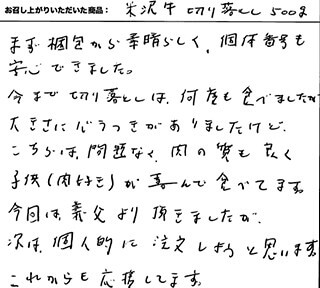 お召し上がりいただいた商品： 米沢牛 切り落とし 500g
まず梱包から素晴らしく、個体番号も
安心できました。
今まで切り落としは、何度も食べましたが
大きさにバラつきがありましたけど、
こちらは、問題なく、肉の質も良く
子供(肉好き)が喜んで食べてます。
今回は義父より頂きましたが、
次は、個人的に注文しようと思います。
これからも応援してます。